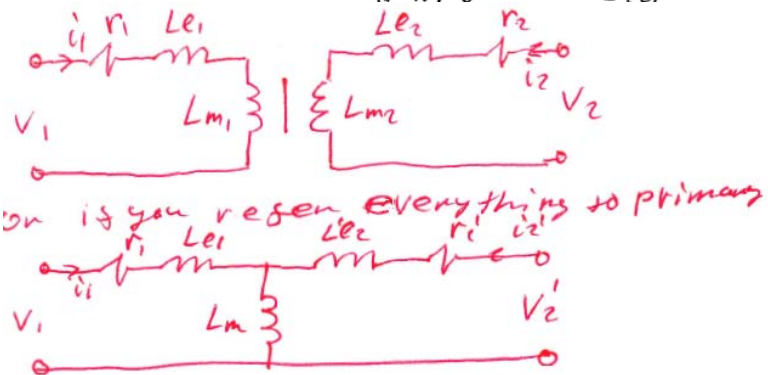 i1 r1 Le1 Le2 r2
i2
V1 Lm1 Lm2 V2
or if you refer everything to primary
r1 Le1 Le2' r2' i2'
i1
V1 Lm V2'